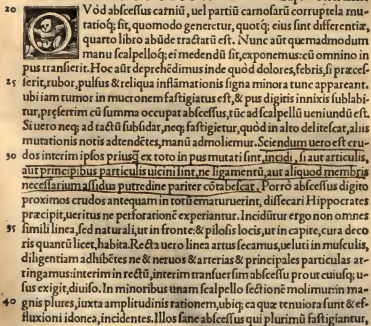 20 QVòd abscessus carniũ, uel partiũ carnosarũ corruptela mu-
tatioq; sit, quomodo generetur, quotq; eius sint differentiæ,
quarto libro abũde tractatũ est. Nunc aũt quemadmodum
manu scalpelloq; ei medendũ sit, exponemus: cũ omnino in
pus transierit. Hoc aũt deprehẽdimus inde quòd dolores, febris, si præces-
25 serit, rubor, pulsus & reliqua inflãmationis signa minora tunc appareant.
ubi iam tumor in mucronem fastigiatus est, & pus digitis innixis sublabi-
tur, præsertim cũ summa occupat abscessus, tũc ad scalpellũ ueniundũ est.
Si uero neq; ad tactũ subsidat, neq; fastigietur, quòd in alto delitescat, alijs
mutationis notis attendẽtes, manũ admoliemur. Sciendum uero est cru-
30 dos interim ipsos priusq̃ ex toto in pus mutati sint, incidi, si aut articulis,
aut principibus particulis uicini sint, ne ligamentũ, aut aliquod membris
necessarium assidua putredine pariter cõtabescat. Porrò abscessus digito
proximos crudos antequam in totũ ematuruerint, dissecari Hippocrates
præcipit, ueritus ne perforationẽ experiantur. Incidũtur ergo non omnes
35 simili linea, sed naturali, ut in fronte: & pilosis locis, ut in capite, cura deco
ris quantũ licet, habita. Recta uero linea artus secamus, ueluti in musculis,
diligentiam adhibẽtes ne & neruos & arterias & principales particulas at-
tingamus: interim in rectũ, interim transuersim abscessu prout cuiusq; u-
sus exigit, diuiso. In minoribus unam scalpello sectionẽ molimur: in ma-
40 gnis plures, iuxta amplitudinis rationem, ubiq; ea quæ tenuiora sunt & ef-
fluxioni idonea, incidentes. Illos sane abscessus qui plurimũ fastigiantur,